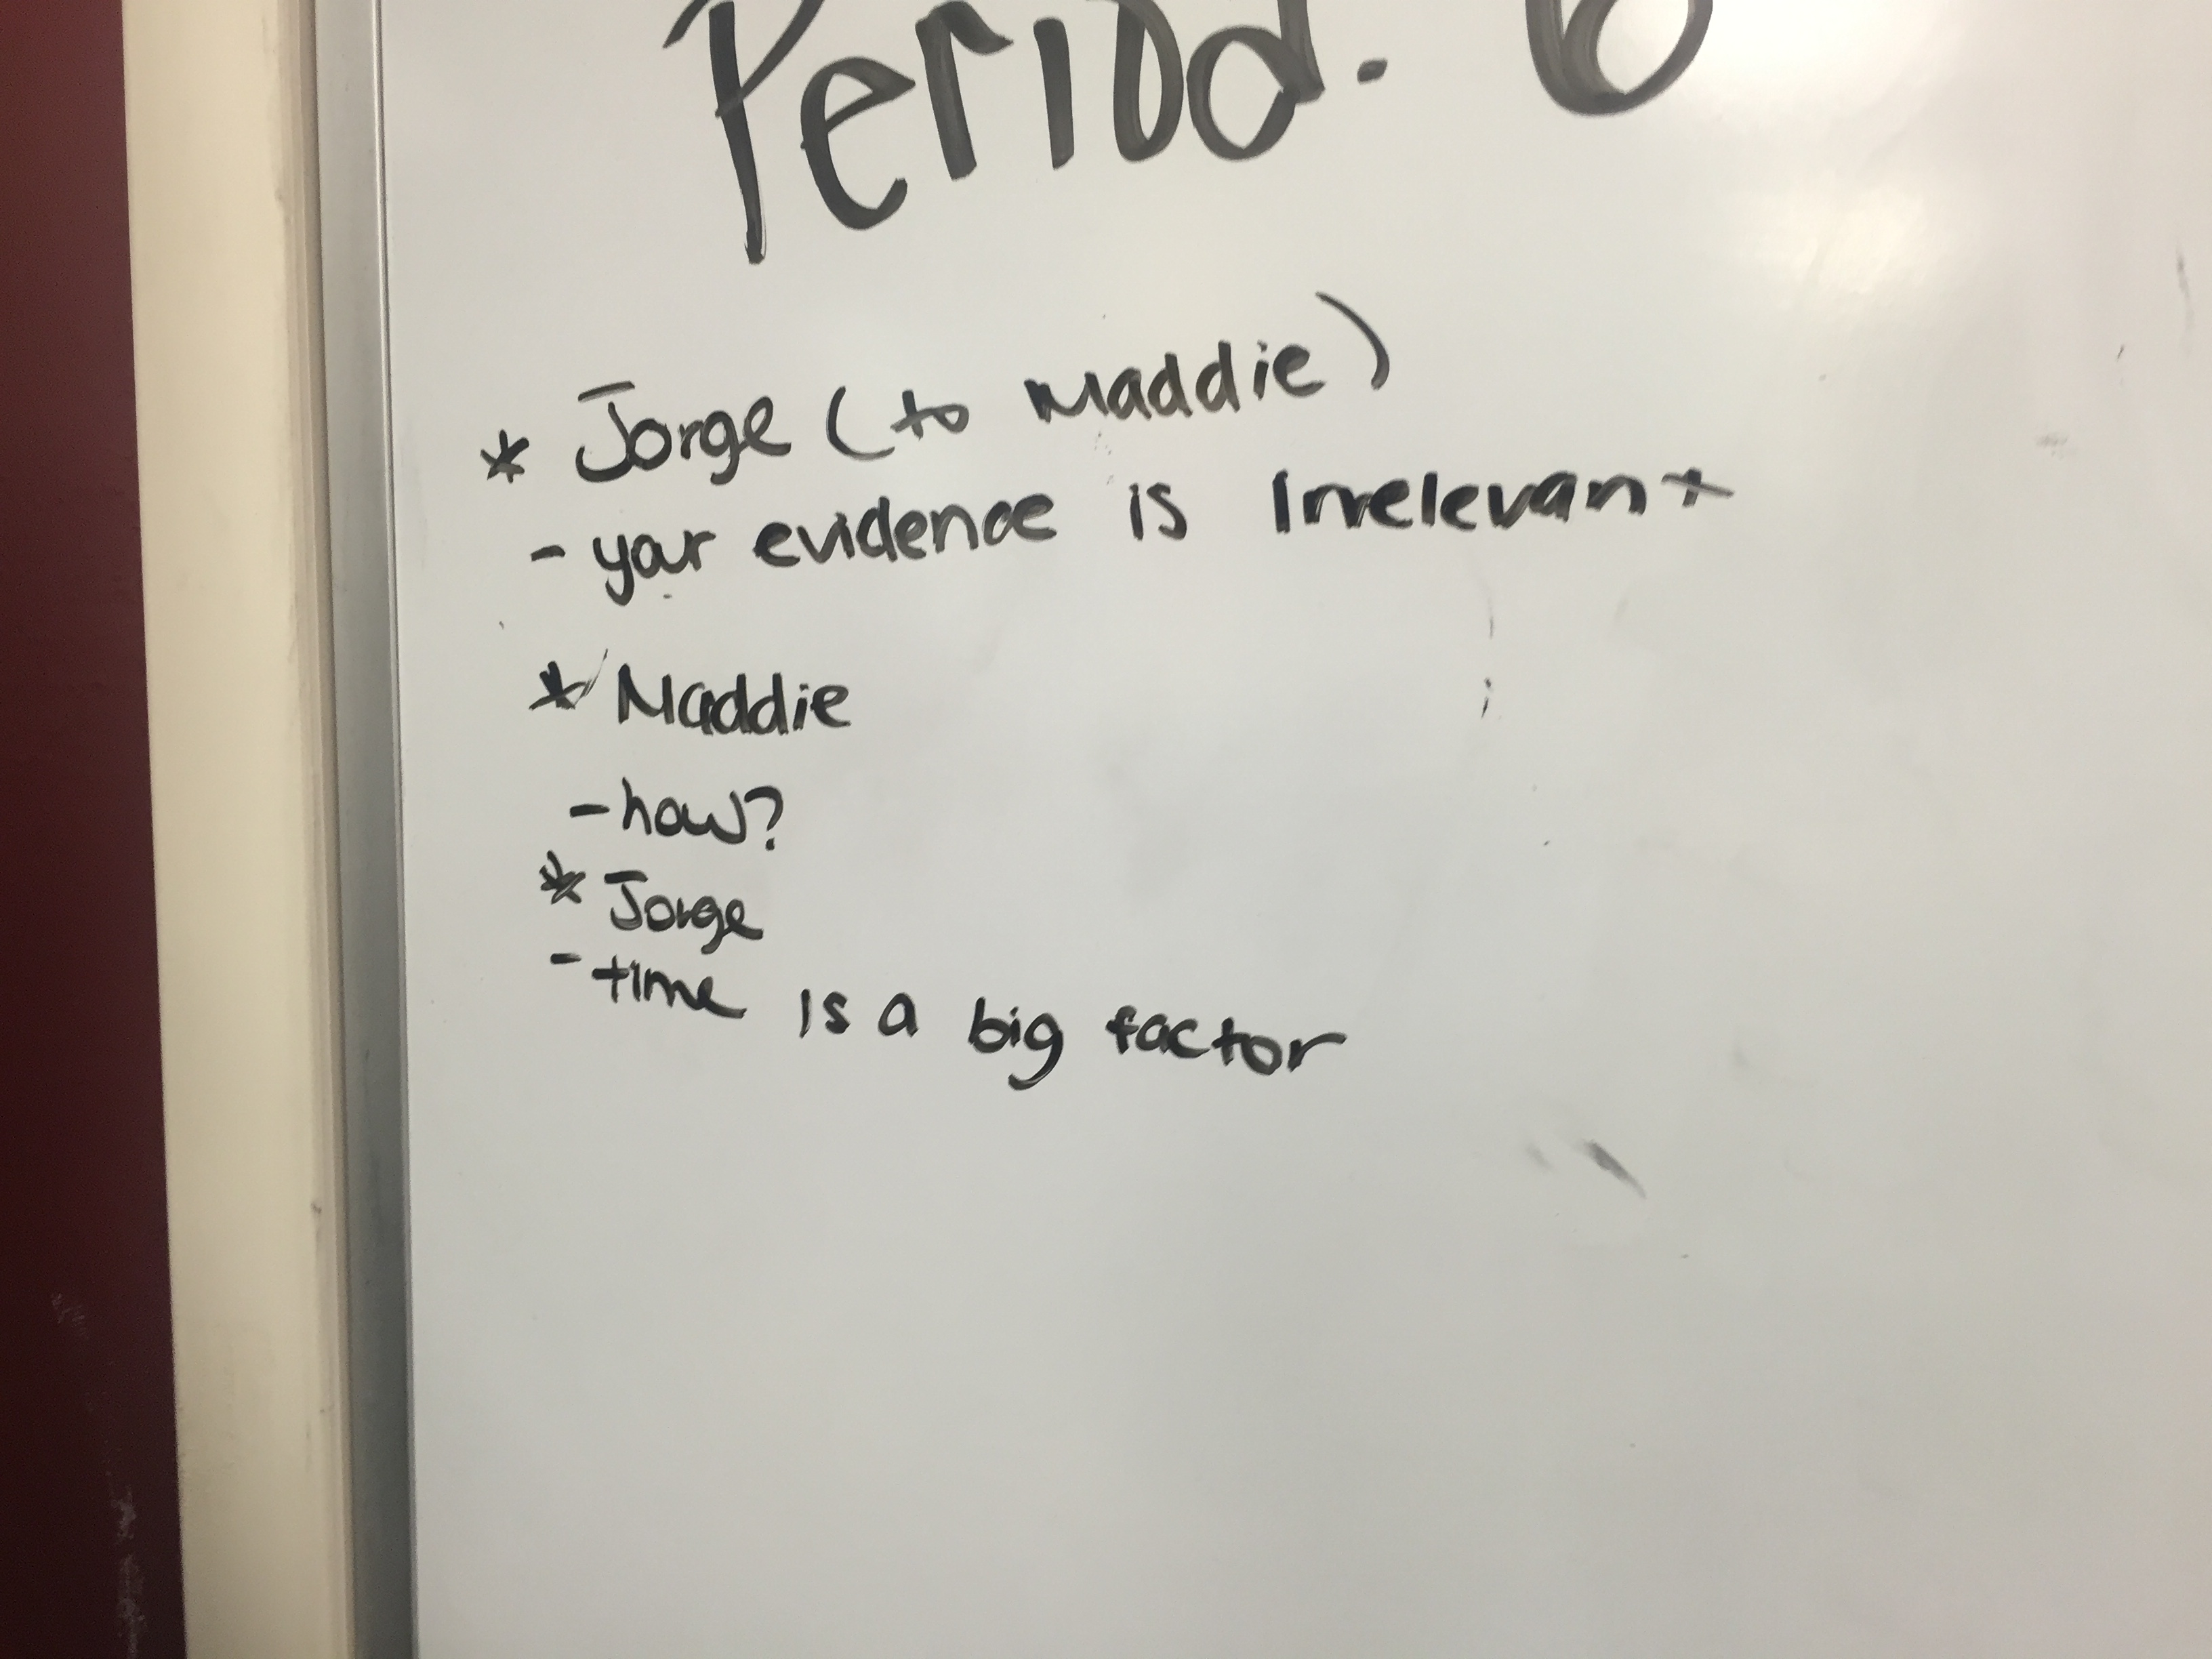 Period. 6
* Jorge (to Maddie)
- your evidence is Irrelevant
* Maddie
- how?
* Jorge
- time is a big factor